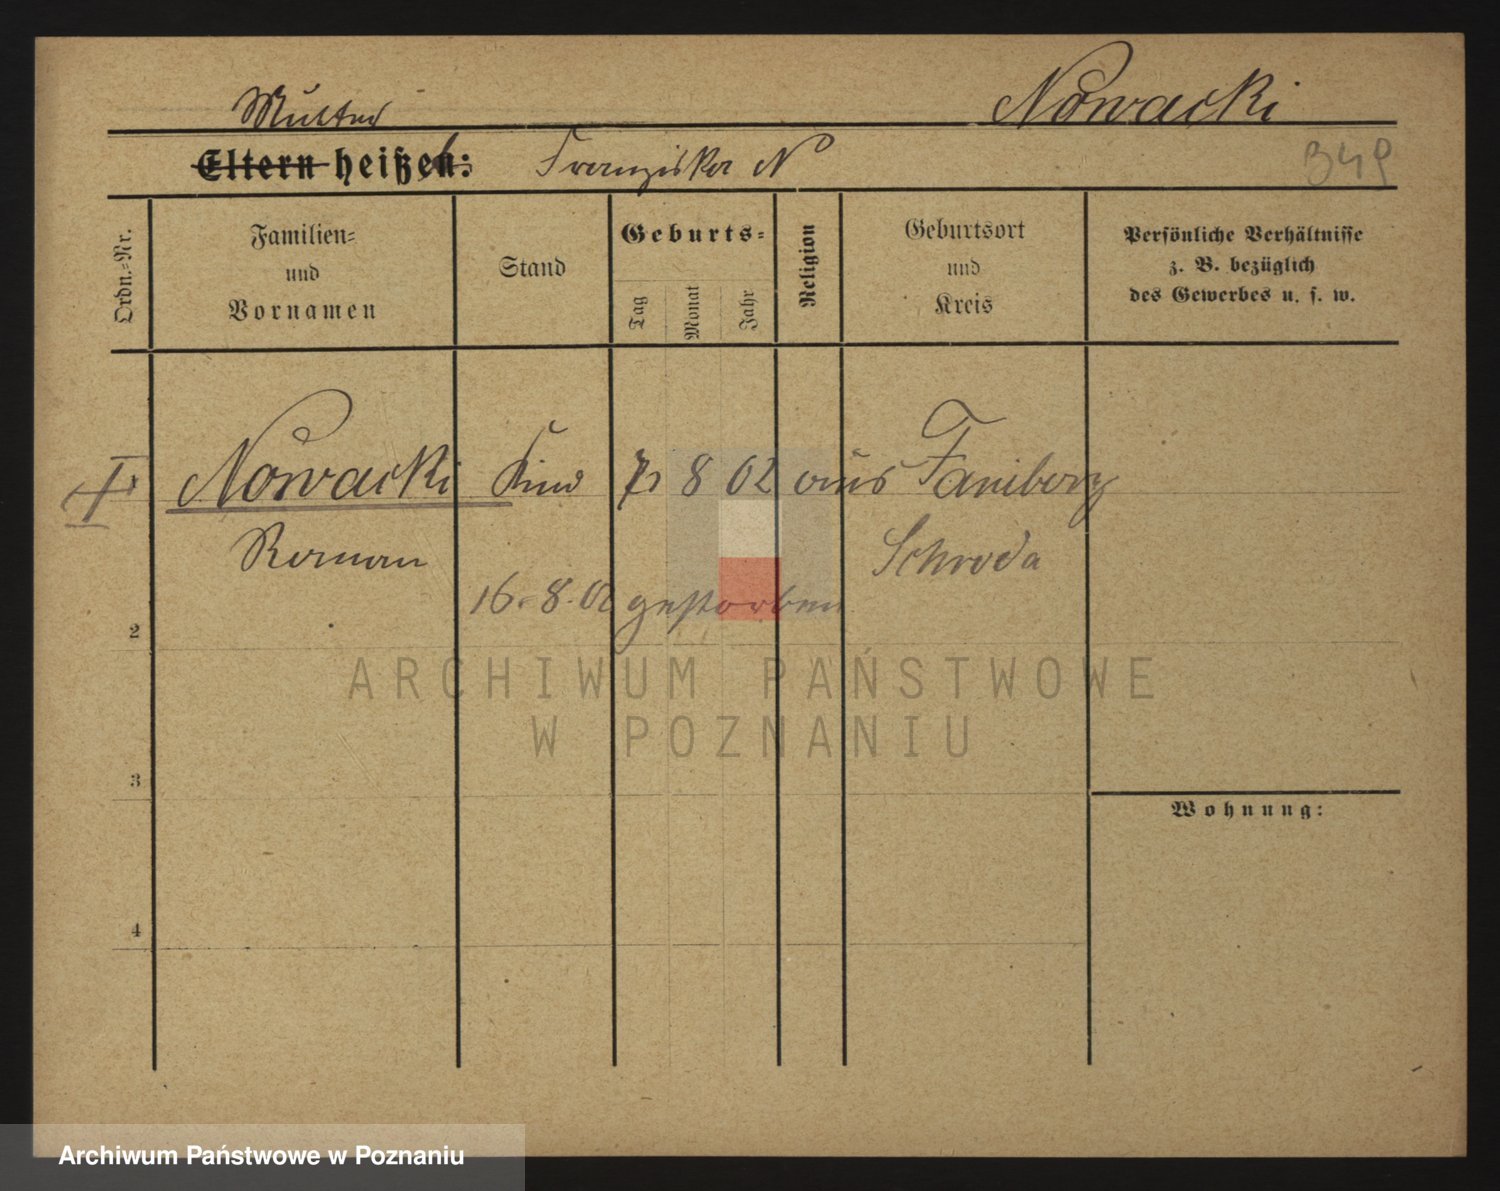 Mutter Nowacki
Eltern heißen: Franziska N
349
Ordn.-Nr.
Familien-
und
Vornamen
Stand
Geburts-
Tag
Monat
Jahr
Religion
Geburtsort
und
Kreis
Persönliche Verhältnisse
z. B. bezüglich
des Gewerbes u. s. w.
Nowacki Kind 8 02 aus
Roman Schroda
16. 8. 02 gestorben
2
3
4
Wohnung:
ARCHIWUM PAŃSTWOWE
W POZNANIU
Archiwum Państwowe w Poznaniu